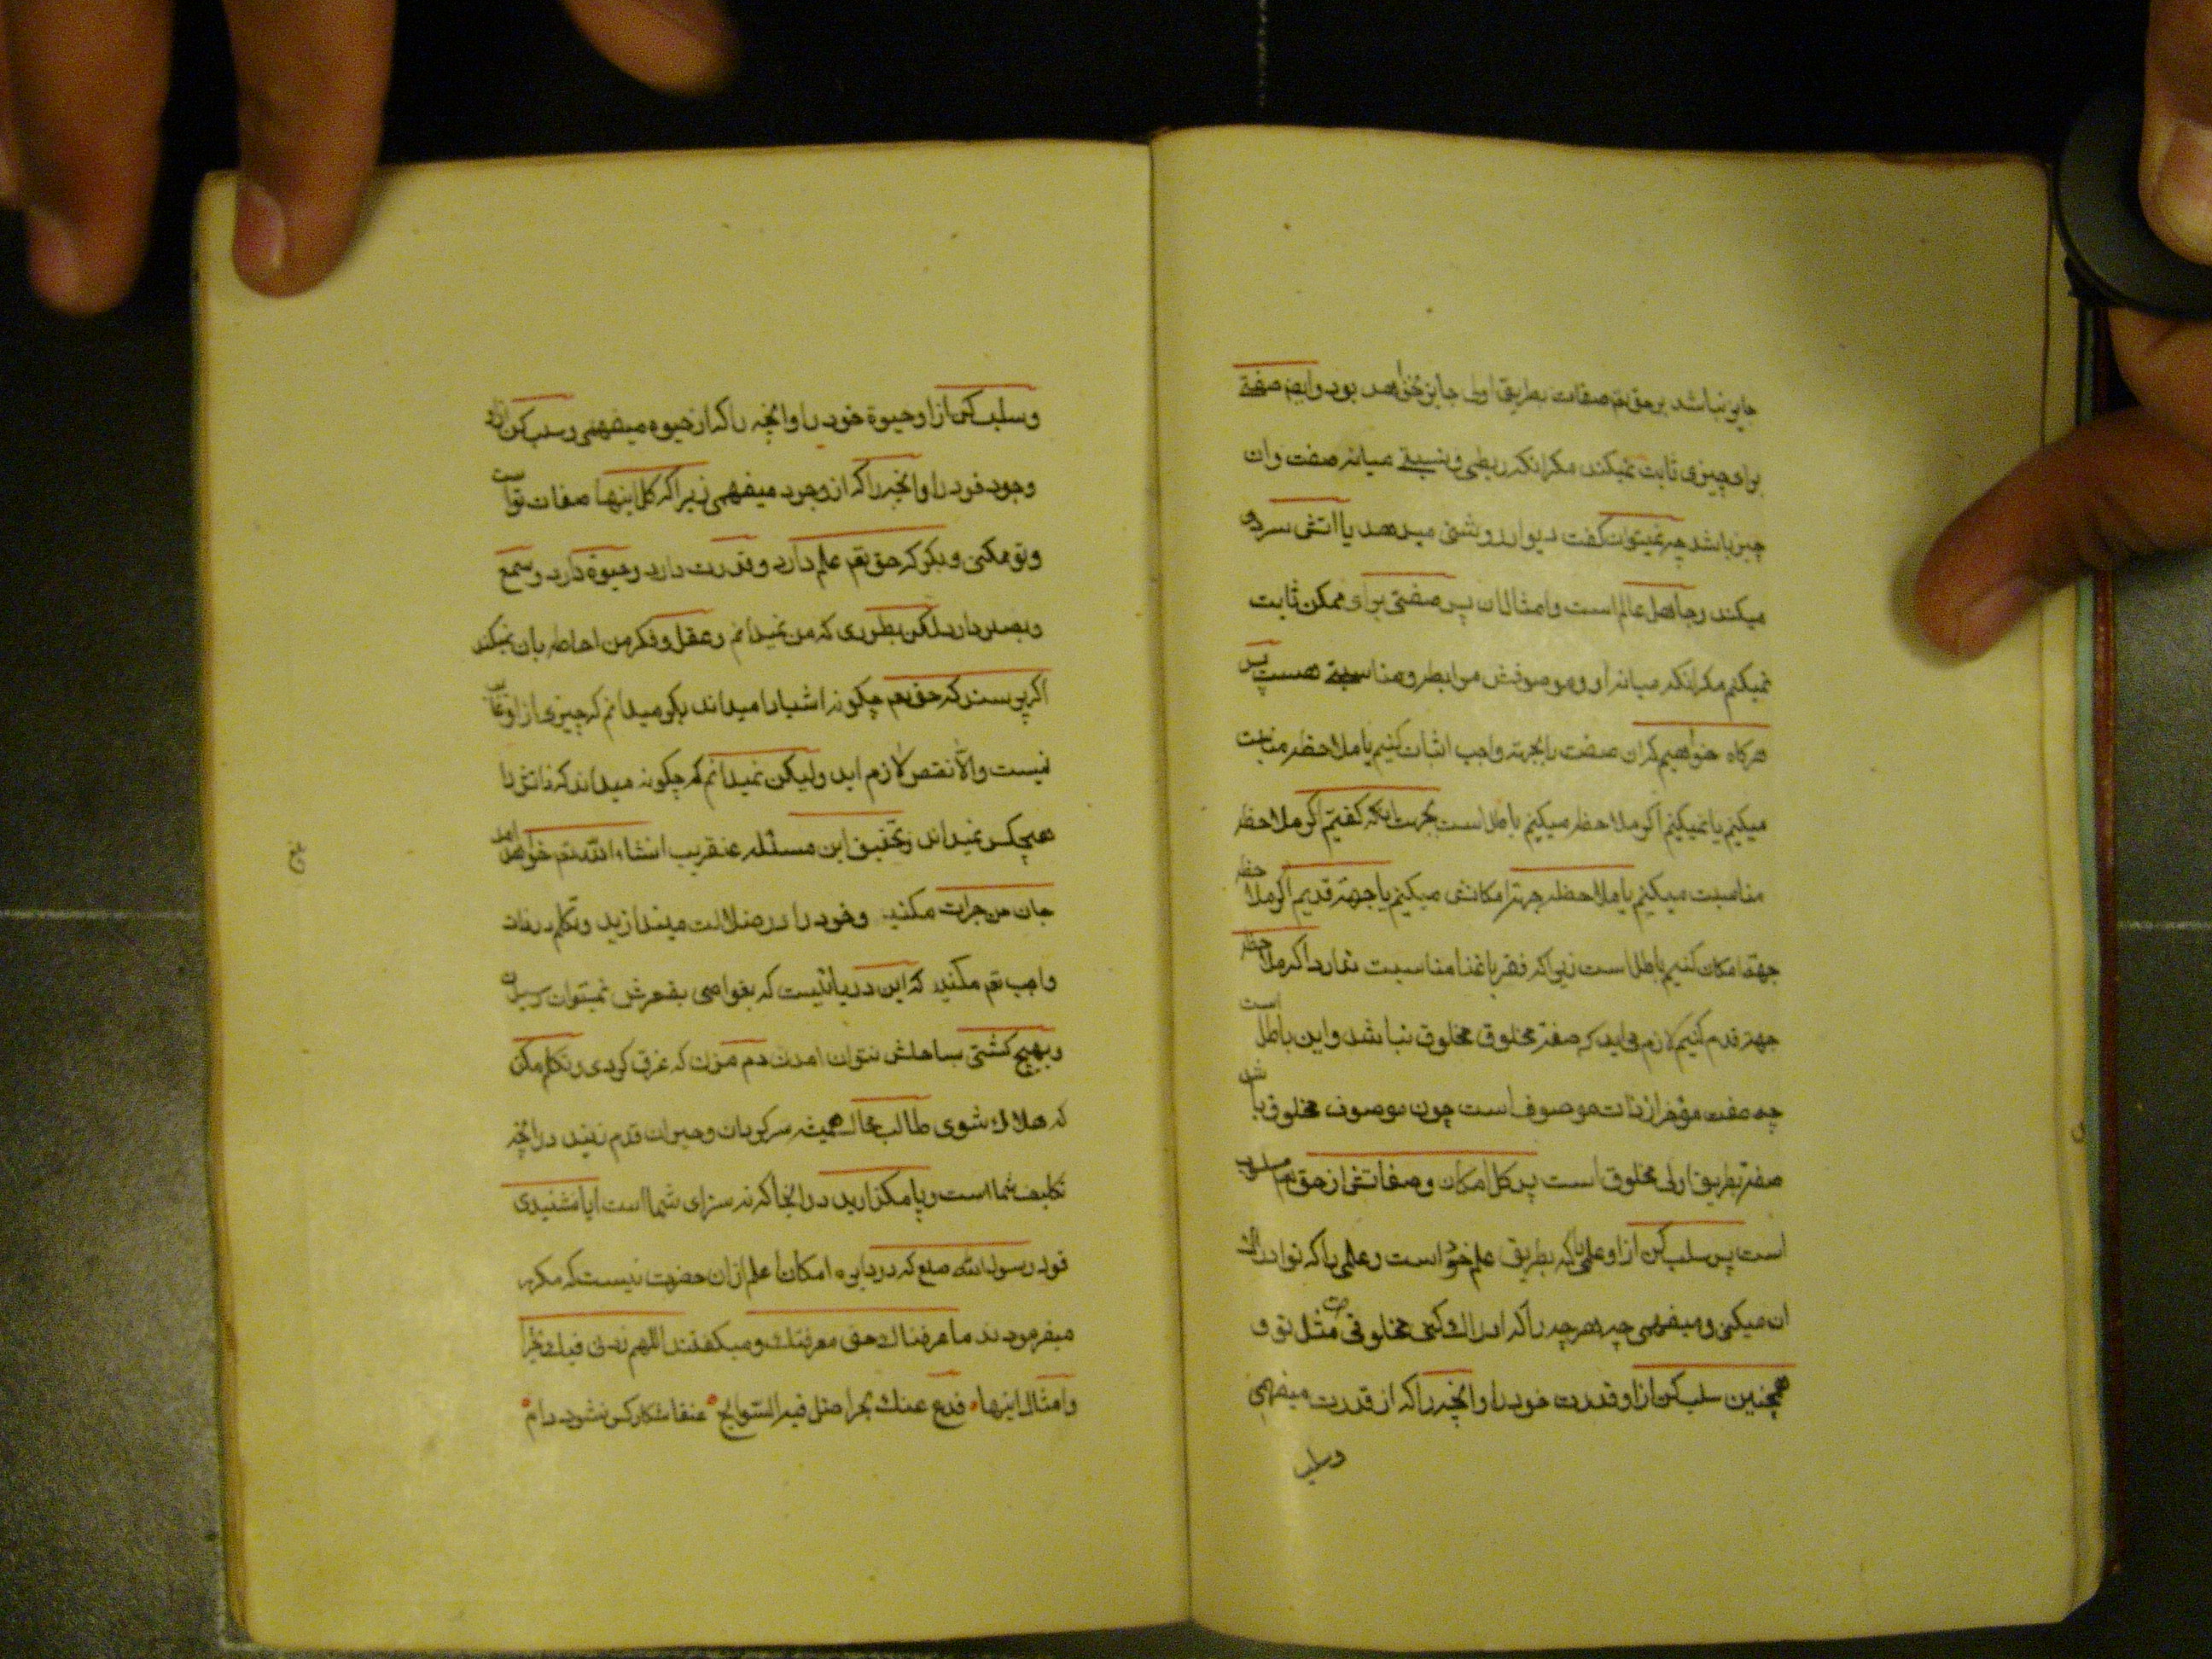 جایز نباشد بر حق تع صفات بطریق اولی جایز نخواهد بود وایض صفتی
برای چیزی ثابت نمیکند مکر انکه ربطی و نسبتی میانه صفت و ان
چیز باشد چه نمیتوان کفت دیوار روشنی میدهد یا اتش سردی
میکند و جاهل عالم است و امثال ان پس صفتی برای ممکن ثابت
نمیکنم مکر انکه میانه او و موصوفش مرابطه و مناسبتی هست پس
هرکاه خواهیم که ان صفت را بجهة واجب اثبات کنیم یا ملاحظه مناسبت
میکنیم یا نمیکنیم اکر ملاحظه میکنیم باطل است بجهت انکه کفتیم اکر ملاحظه
مناسبت میکنیم یا ملاحظه جهة امکانش میکنیم یا جهة قدیم اکر ملاحظه
جهة امکان کنیم باطل است زیرا که فقر با غنا مناسبت ندارد اکر ملاحظه
جهة قدم کنیم لازم می اید که صفة مخلوق مخلوق نباشد و این باطل است
چه صفت مؤخر از ذات موصوف است چون موصوف مخلوق باشد
صفة بطریق اولی مخلوق است پس کل امکان و صفاتش از حق تع مسلوب
است پس سلب کن از او علمی را که بطریق علم خود است و علمی را که تو ادراک
ان میکنی و میفهمی چه هرچه را که ادراک کنی مخلوقی مثل تو و
همچنین سلب کن از او قدرت خود را و انچه را که از قدرت میفهمی
وسلب
وسلب کن از او حیوة خود را و انچه را که از حیوه میفهمی و سلب کن از او
وجود خود را و انچه را که از وجود میفهمی زیرا که کل اینها صفات تو است
و تو ممکنی و بکو که حق تع علم دارد و قدرت دارد و حیوة دارد و سمع
و بصر دارد لکن بطوری که من نمیدانم و عقل و فکر من احاطه بان نمیکند
اکر پرسند که حق تع چکونه اشیا را میداند بکو میدانم که چیزی از او غایب
نیست والّا نقص لازم اید ولیکن نمیدانم که چکونه میداند که ذاتش را
هیچکس نمیداند و تحقیق این مسئله عنقریب انشاء الله تع خواهد امد
جان من جرات مکنید و خود را در ضلالت میندازید و تکلم در ذات
واجب تع مکنید که این دریائیست که بغواصی بقعرش نمیتوان رسیدن
و بهیچ کشتی بساحلش نتوان امدن دم مزن که غرق کردی و تکلم مکن
که هلاک شوی طالب محال همیشه سرکردان و حیران قدم نهید در انچه
تکلیف شما است و پا مکذارید در انجا که نه سزای شما است ایا نشنیدی
قول رسول الله صلع که در دایره امکان اعلم از ان حضرت نیست که مکرر
میفرمودند ما عرفناک حق معرفتک و میکفتند اللهم زدنی فیک تحیرا
و امثال اینها فدع عنک بحرا ضل فیه السّوابح عنقا شکار کس نشود دام